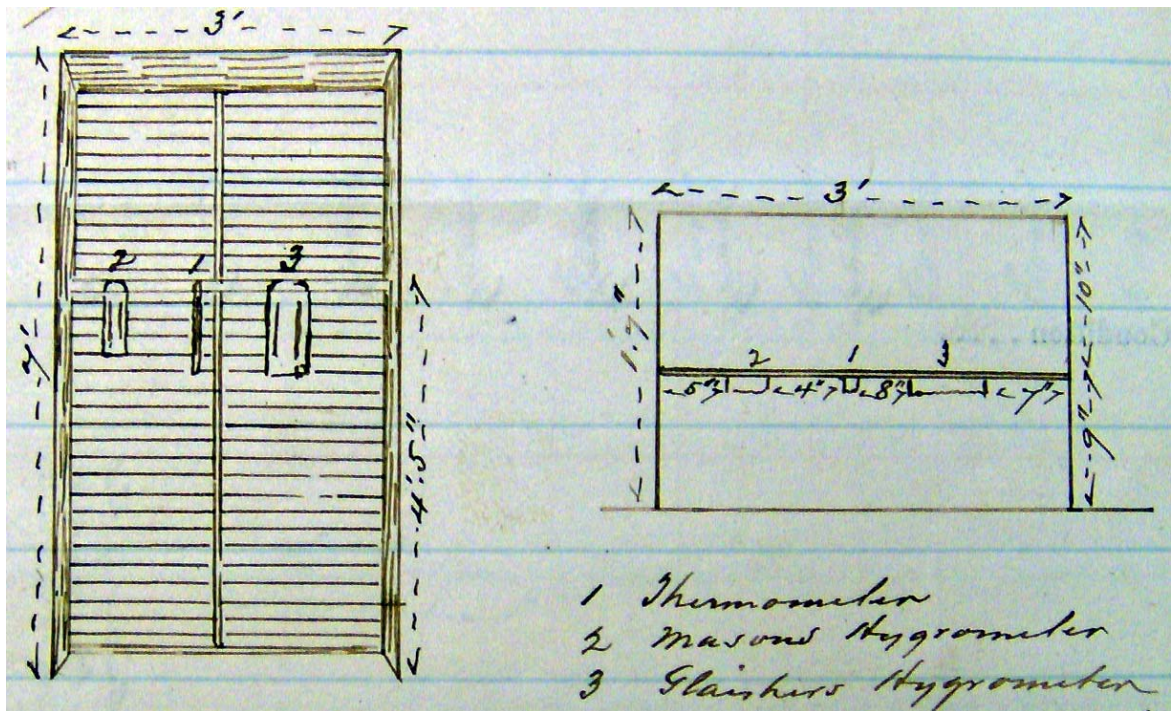 3'
3'
2 1 3
7'
4'.5"
1'.7"
10"
2 1 3
5" 4" 8" 7"
9"
1 Thermometer
2 Masons Hygrometer
3 Glaishers Hygrometer